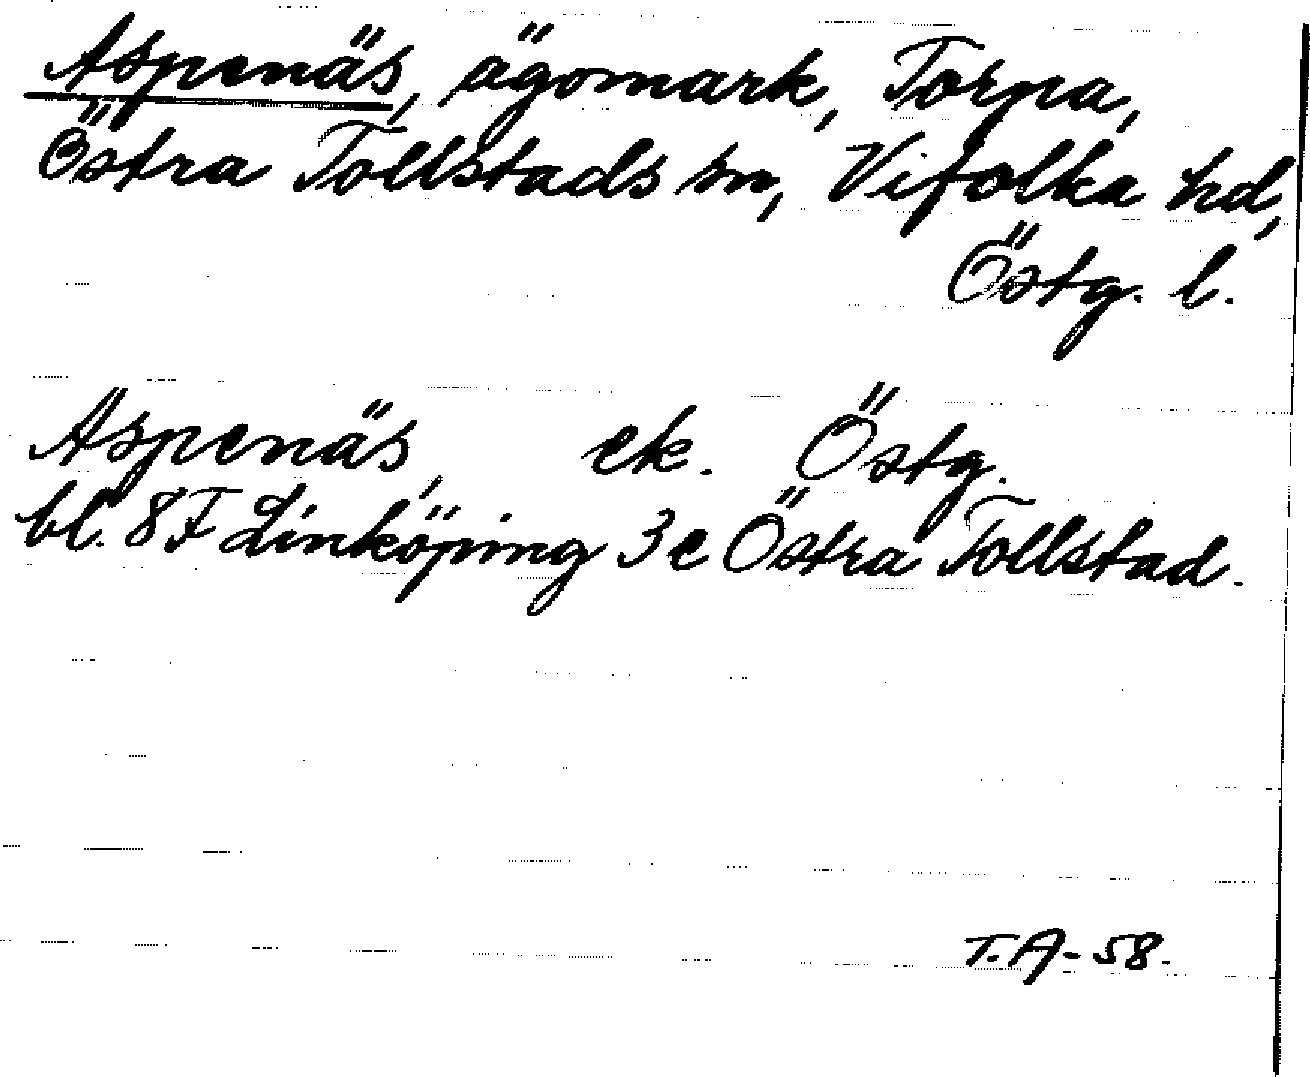 Aspenäs, ägomark, Torpa,
Östra Tollstads sn, Vifolka hd,
Östg. l.
Aspenäs, ek. Östg.
bl. 8F Linköping 3e Östra Tollstad.
T.A-58.